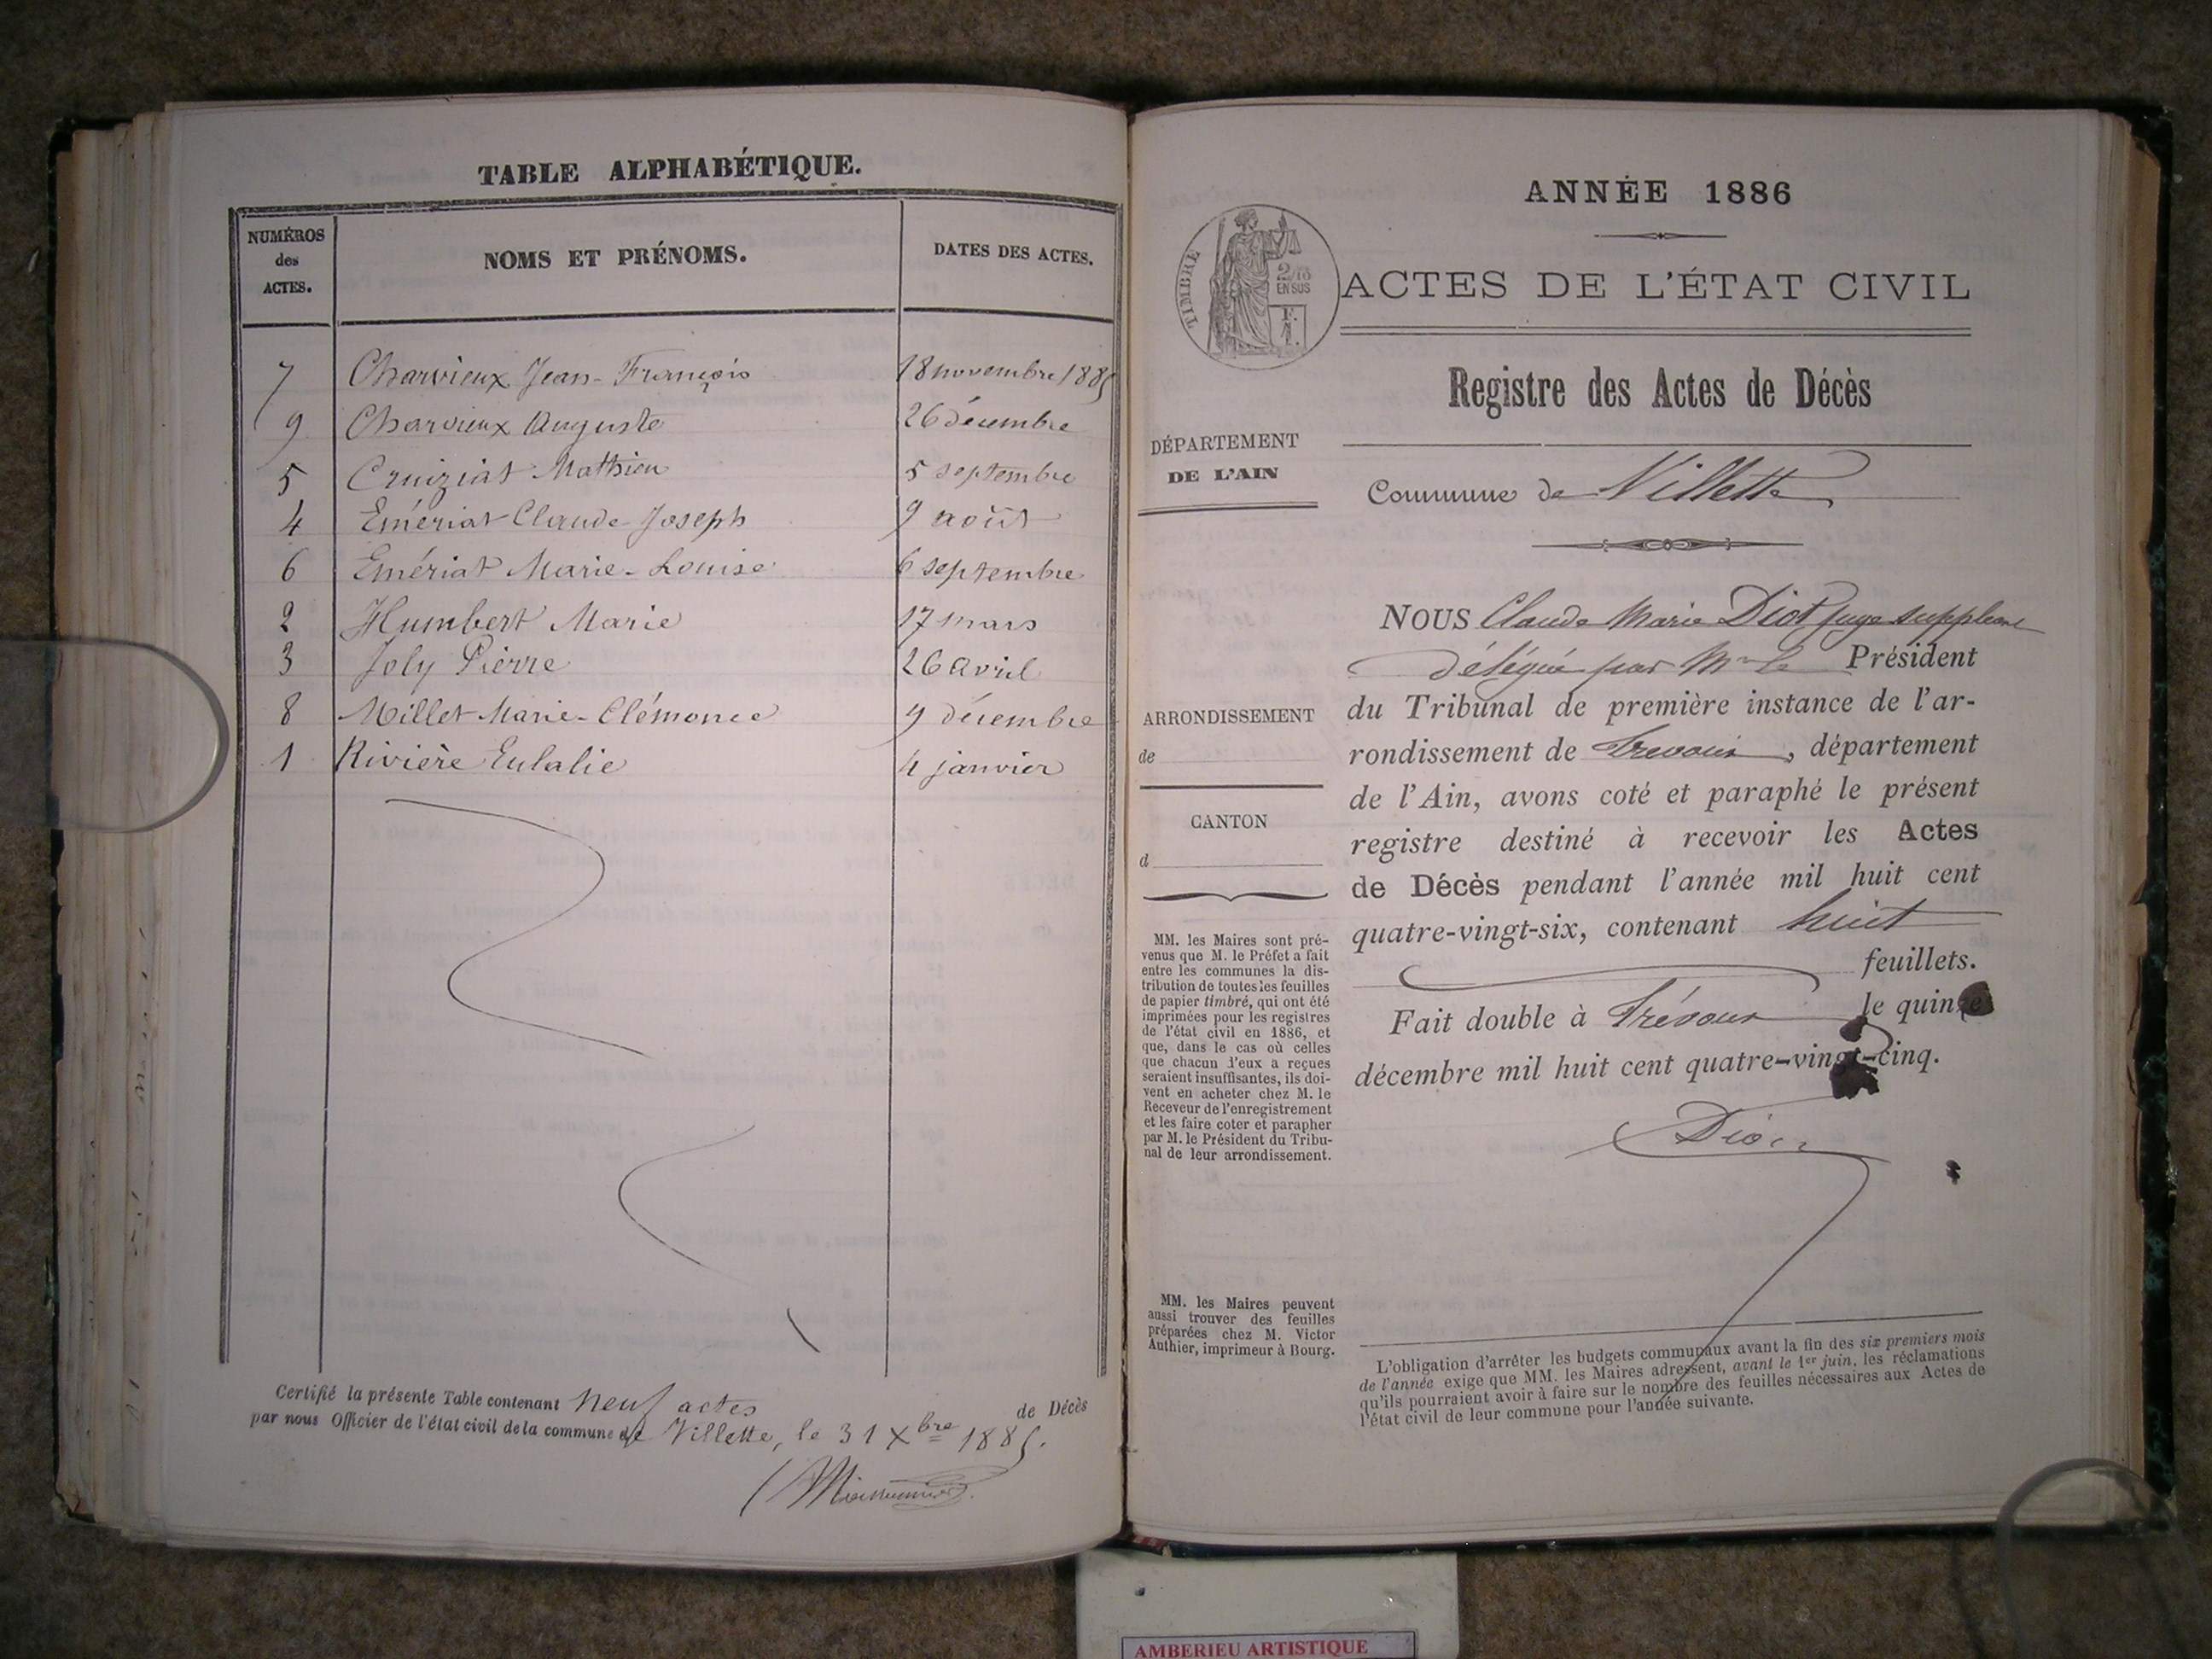 TABLE ALPHABÉTIQUE.
NUMÉROS
des
ACTES.
NOMS ET PRÉNOMS.
DATES DES ACTES.
7 Charvieux Jean-François 18 novembre 1885
9 Charvieux Auguste 26 décembre
5 Cruiziat Mathieu 5 septembre
4 Emériat Claude-Joseph 9 août
6 Emériat Marie-Louise 6 septembre
2 Humbert Marie 17 mars
3 Joly Pierre 26 avril
8 Millet Marie-Clémence 9 décembre
1 Rivière Eulalie 4 janvier
Certifié la présente Table contenant neuf actes de Décès
par nous Officier de l'état civil de la commune de Villette, le 31 Xbre 1885.
ANNÉE 1886
TIMBRE
2/10
EN SUS
ACTES DE L'ÉTAT CIVIL
Registre des Actes de Décès
DÉPARTEMENT
DE L'AIN
Commune de Villette
ARRONDISSEMENT
de
CANTON
d
MM. les Maires sont pré-
venus que M. le Préfet a fait
entre les communes la dis-
tribution de toutes les feuilles
de papier timbré, qui ont été
imprimées pour les registres
de l'état civil en 1886, et
que, dans le cas où celles
que chacun d'eux a reçues
seraient insuffisantes, ils doi-
vent en acheter chez M. le
Receveur de l'enregistrement
et les faire coter et parapher
par M. le Président du Tribu-
nal de leur arrondissement.
MM. les Maires peuvent
aussi trouver des feuilles
préparées chez M. Victor
Authier, imprimeur à Bourg.
NOUS Claude Marie Diot juge suppléant
délégué par Mr le Président
du Tribunal de première instance de l'ar-
rondissement de Trévoux, département
de l'Ain, avons coté et paraphé le présent
registre destiné à recevoir les Actes
de Décès pendant l'année mil huit cent
quatre-vingt-six, contenant huit
feuillets.
Fait double à Trévoux le quinze
décembre mil huit cent quatre-vingt-cinq.
Diot
L'obligation d'arrêter les budgets communaux avant la fin des six premiers mois
de l'année exige que MM. les Maires adressent, avant le 1er juin, les réclamations
qu'ils pourraient avoir à faire sur le nombre des feuilles nécessaires aux Actes de
l'état civil de leur commune pour l'année suivante.
AMBERIEU ARTISTIQUE